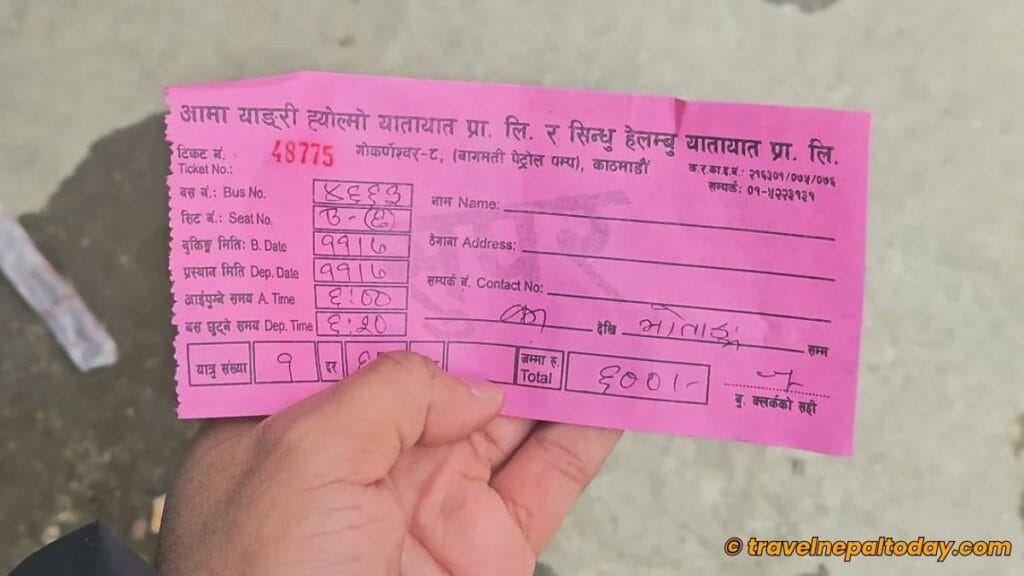 आमा याङ्री ह्योल्मो यातायात प्रा. लि. र सिन्धु हेलम्बु यातायात प्रा. लि.
टिकट नं. 48775 गोकर्णेश्वर-८, (बागमती पेट्रोल पम्प), काठमाडौं क.र.का.द.नं.: २१६३०१/०७५/०७६
Ticket No.: सम्पर्क: ०१-४२२३१३१
बस नं.: Bus No. ४६६३ नाम Name:
सिट नं.: Seat No.
बुकिङ्ग मिति: B. Date ११।७ ठेगाना Address:
प्रस्थान मिति Dep. Date ११।७
आईपुग्ने समय A. Time ६:०० सम्पर्क नं. Contact No:
बस छुट्ने समय Dep. Time ६:२० का देखि सम्म
यात्रु संख्या १ दर जम्मा रु. Total ६००।-
बु. क्लर्कको सही
© travelnepaltoday.com